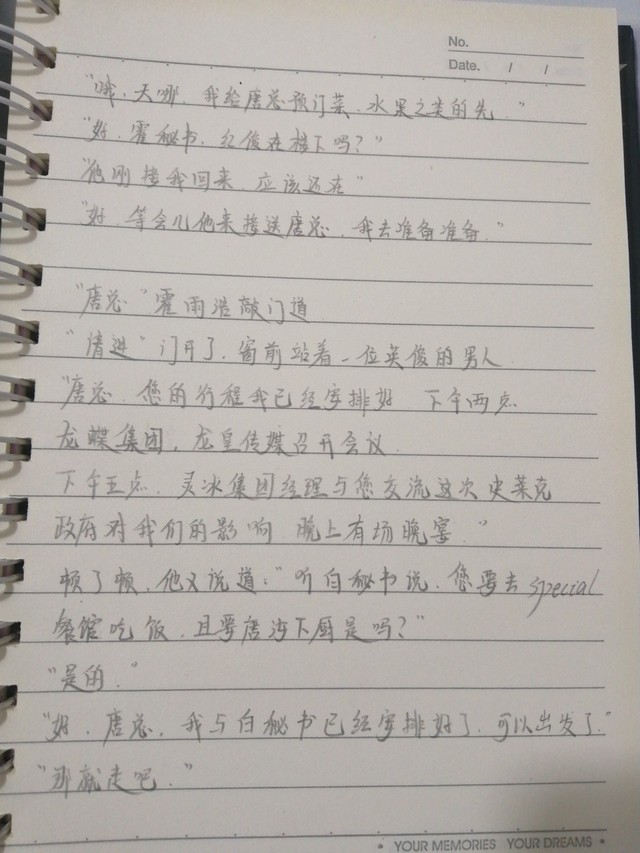 No.
Date. / /
"哦，天哪，我给唐总预订菜、水果之类的先。"
"好，霍秘书，红俊在楼下吗？"
"他刚接我回来，应该还在"
"好，等会儿他来接送唐总，我去准备准备。"
"唐总"霍雨浩敲门道
"请进"门开了，窗前站着一位英俊的男人
"唐总，您的行程我已经安排好 下午两点
龙蝶集团，龙皇传媒召开会议.
下午五点，灵冰集团经理与您交流这次史莱克
政府对我们的影响 晚上有场晚宴."
顿了顿，他又说道："听白秘书说，您要去special
餐馆吃饭，且要唐 下厨是吗？"
"是的。"
"好，唐总，我与白秘书已经安排好了，可以出发了."
"那就走吧。"
• YOUR MEMORIES YOUR DREAMS •